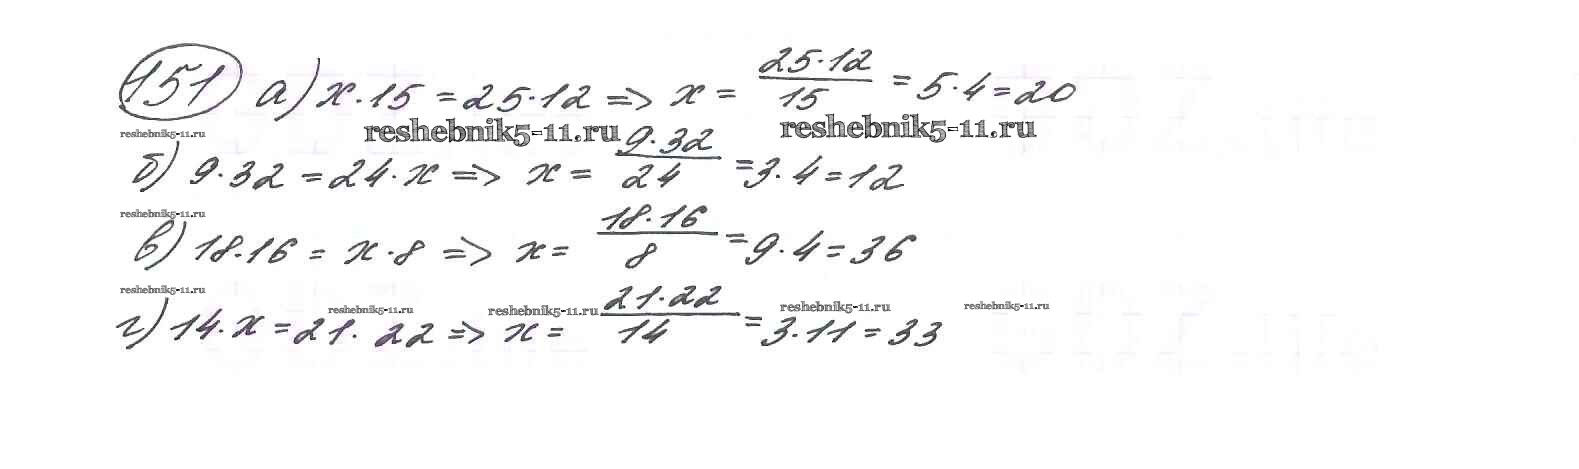 151 а) x·15 = 25·12 => x = 25·12/15 = 5·4 = 20
reshebnik5-11.ru reshebnik5-11.ru reshebnik5-11.ru
б) 9·32 = 24·x => x = 9·32/24 = 3·4 = 12
reshebnik5-11.ru
в) 18·16 = x·8 => x = 18·16/8 = 9·4 = 36
reshebnik5-11.ru reshebnik5-11.ru reshebnik5-11.ru reshebnik5-11.ru reshebnik5-11.ru
г) 14·x = 21·22 => x = 21·22/14 = 3·11 = 33